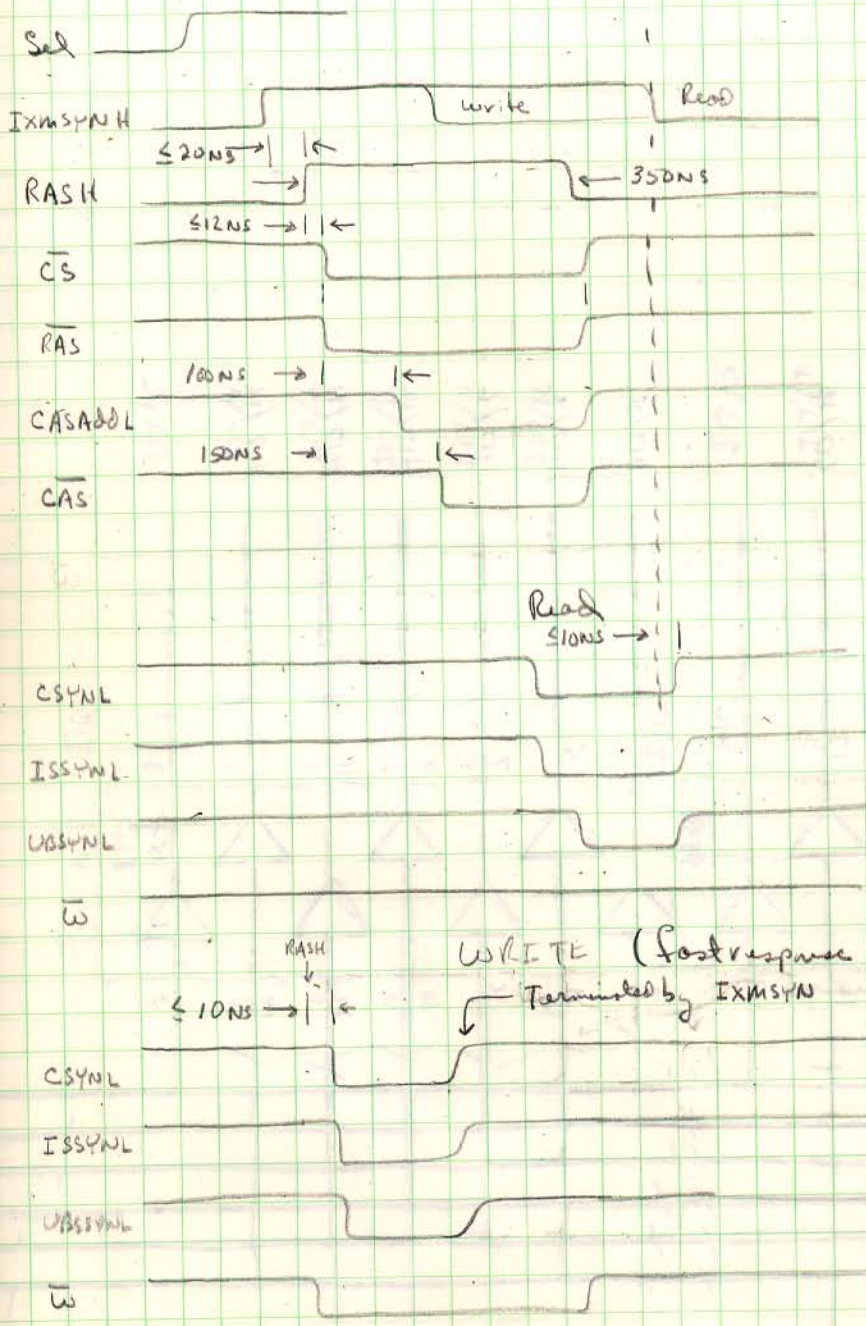 Sel
IXMSYN H
write
Read
≤20NS
RASH
350NS
≤12NS
C̅S̅
R̅A̅S̅
100NS
CASAddL
150NS
C̅A̅S̅
Read
≤10NS
CSYNL
ISSYNL
UBSYNL
W̅
RASH
WRITE (fast response
≤10NS
Terminated by IXMSYN
CSYNL
ISSYNL
UBSSYNL
W̅